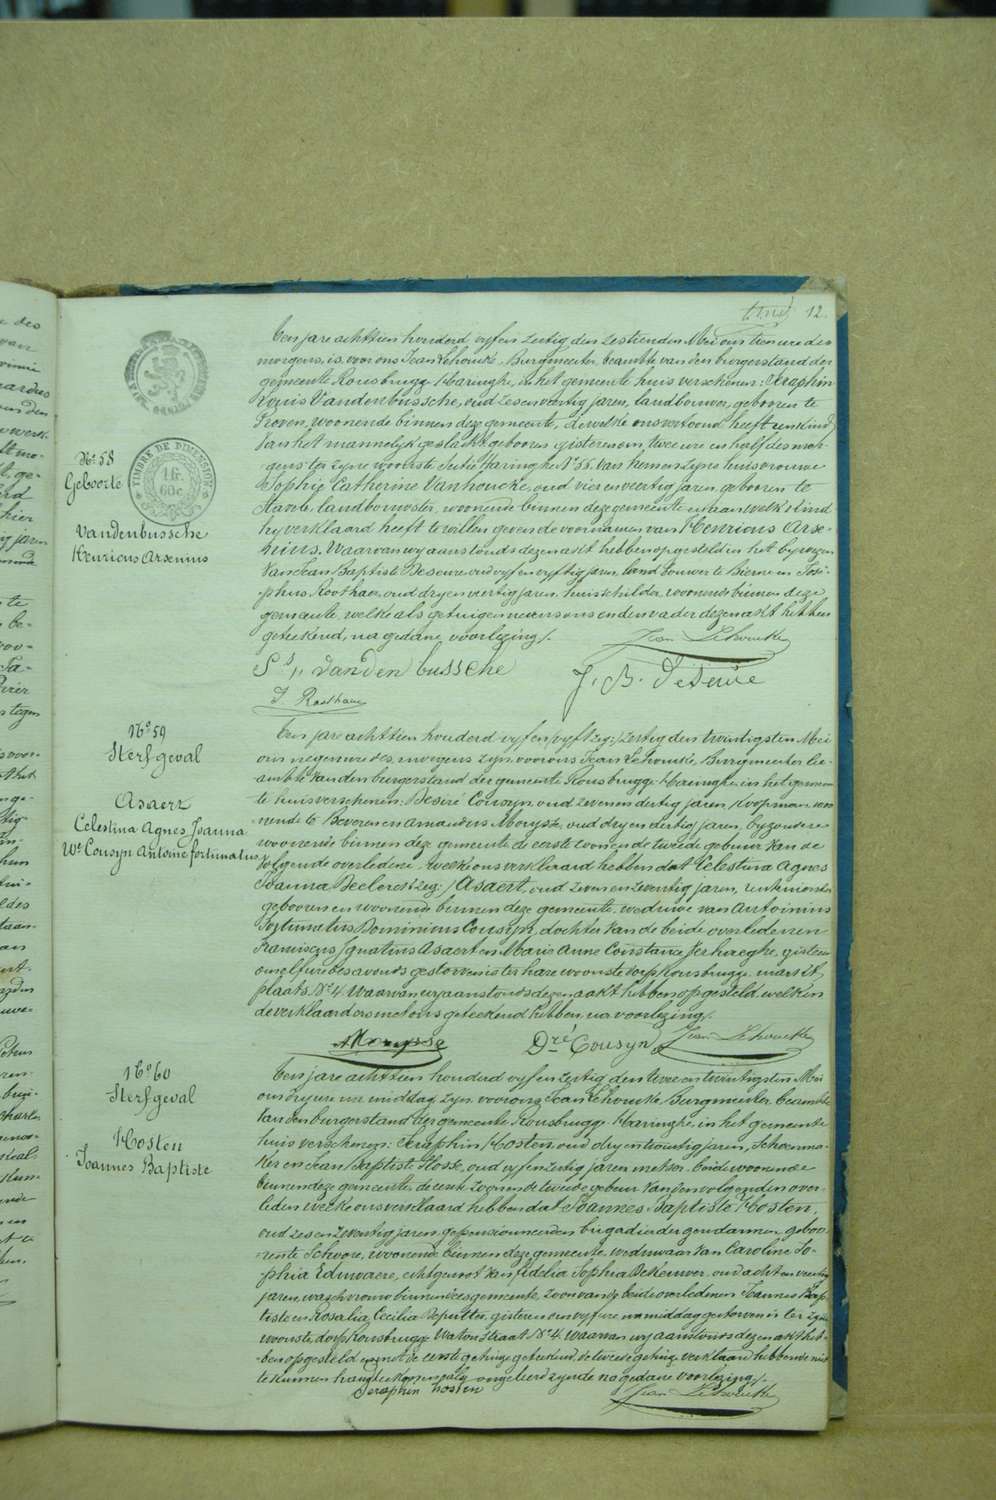 12.
Een jare achttien honderd vyf en zestig den zestienden Mei om tien ure des
morgens, is voor ons Jean Lehoucke, Burgmeester, beambte van den burgerstand der
gemeente Rousbrugge-Haringhe, in het gemeente huis verschenen: Seraphin
Louis Vandenbussche, oud zes en veertig jaren, landbouwer, geboren te
Proven, woonende binnen deze gemeente, dewelke ons vertoond heeft een kind
van het mannelyk geslacht geboren gisteren om twee ure en half des mor-
gens ter zyne woonste sectie Haringhe No 56. van hem en zyne huisvrouwe
Sophie Catherine Vanhoucke, oud vier en veertig jaren, geboren te
Stavele, landbouwster, woonende binnen deze gemeente en aan welk kind
hy verklaard heeft te willen geven de voornamen van Henricus Arse-
nius. Waarvan wy aanstonds dezen akt hebben opgesteld in het bywezen
Van Jean Baptiste Deseure oud vyf en vyftig jaren, landbouwer te Bierne en José-
phus Roothaer, oud dry en veertig jaren, huisschilder, woonende binnen deze
gemeente, welke als getuigen nevens ons en den vader dezen akt hebben
geteekend, na gedane voorlezing /.
Jean Lehoucke
S. L. Vandenbussche
J. B. Deseure
J. Roothaer
No 58
Geboorte
TIMBRE DE DIMENSION
Vandenbussche
Henricus Arsenius
No 59
Sterfgeval
Asaert
Celestina Agnes Joanna
We Cousyn Antoine fortunatus
Een jare achttien honderd vyf en (vyf zeg:) zestig den twintigsten Mei
om negen ure des morgens zyn voor ons Jean Lehoucke, Burgmeester be-
ambte van den burgerstand der gemeente Rousbrugge-Haringhe in het gemeen-
te huis verschenen: Desiré Cousyn oud zeven en dertig jaren, koopman woo-
nende te Beveren en Amandus Morysse, oud dry en dertig jaren, byzondere
woonende binnen deze gemeente de eerste zoon en de tweede gebuur van de
volgende overledene, welke ons verklaard hebben dat Celestina Agnes
Joanna Asaert, oud zeven en zeventig jaren, rentenierster
geboren en woonende binnen deze gemeente, weduwe van Antoinius
Fortunatus Dominicus Cousyn, dochter van de beide overledenen
Franciscus Ignatius Asaert en Marie Anne Constance Verhaeghe, gisteren
om elf ure des avonds gestorven is ter hare woonste dorp Rousbrugge markt
plaats No 4. Waarvan wy aanstonds dezen akt hebben opgesteld, welken
de verklaarders met ons geteekend hebben, na voorlezing /.
A Morysse
Dré Cousyn
Jean Lehoucke
No 60
Sterfgeval
Hosten
Joannes Baptiste
Een jare achttien honderd vyf en zestig den twee en twintigsten Mei
om dry ure na middag zyn voor ons Jean Lehoucke Burgmeester, beambte
van den burgerstand der gemeente Rousbrugge-Haringhe, in het gemeente
huis verschenen: Seraphin Hosten, oud dry en twintig jaren, schoenma-
ker en Jean Baptiste Hosse, oud vyf en zestig jaren metser, beide woonende
binnen deze gemeente, de eerste zoon en de tweede gebuur van den volgenden over-
leden welke ons verklaard hebben dat Joannes Baptiste Hosten,
oud zes en zeventig jaren, gepensionneerden brigadier der gendarmen, geboo-
ren te Schoore, woonende binnen deze gemeente, weduwaar van Caroline So-
phia Eduwaere, echtgenoot van Fidelia Sophia Dekeuwer, oud acht en veertig
jaren, waschvrouw binnen deze gemeente, zoon van de beide overledenen Joannes Bap-
tiste en Rosalia Cecilia Deputter, gisteren om vyf ure namiddag gestorven is ter zyne
woonste dorp Rousbrugge Watoustraat No 4. waarvan wy aanstonds dezen akt heb-
ben opgesteld en met de eerste getuige geteekend, de tweede getuige verklaard hebbende niet
te kunnen ongeleerd zynde na gedane voorlezing /.
Seraphin hosten
Jean Lehoucke